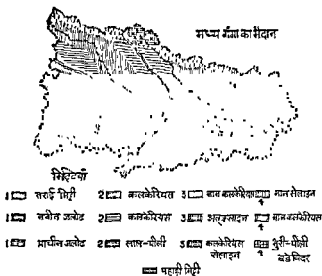 मध्य गंगा का मैदान
मिट्टियाँ
1 तराई मिट्टी 2 कलकेरियस 3 नान कालकेरियस 4 नान सेलाइन
1 नवीन जलोढ 2 कलकेरियस 3 अल्कलाइन 4 नान कलकेरियस
1 प्राचीन जलोढ 2 लाल-पीली 3 कलकेरियस सेलाइन 4 भूरी-पीली
पहाड़ी मिट्टी